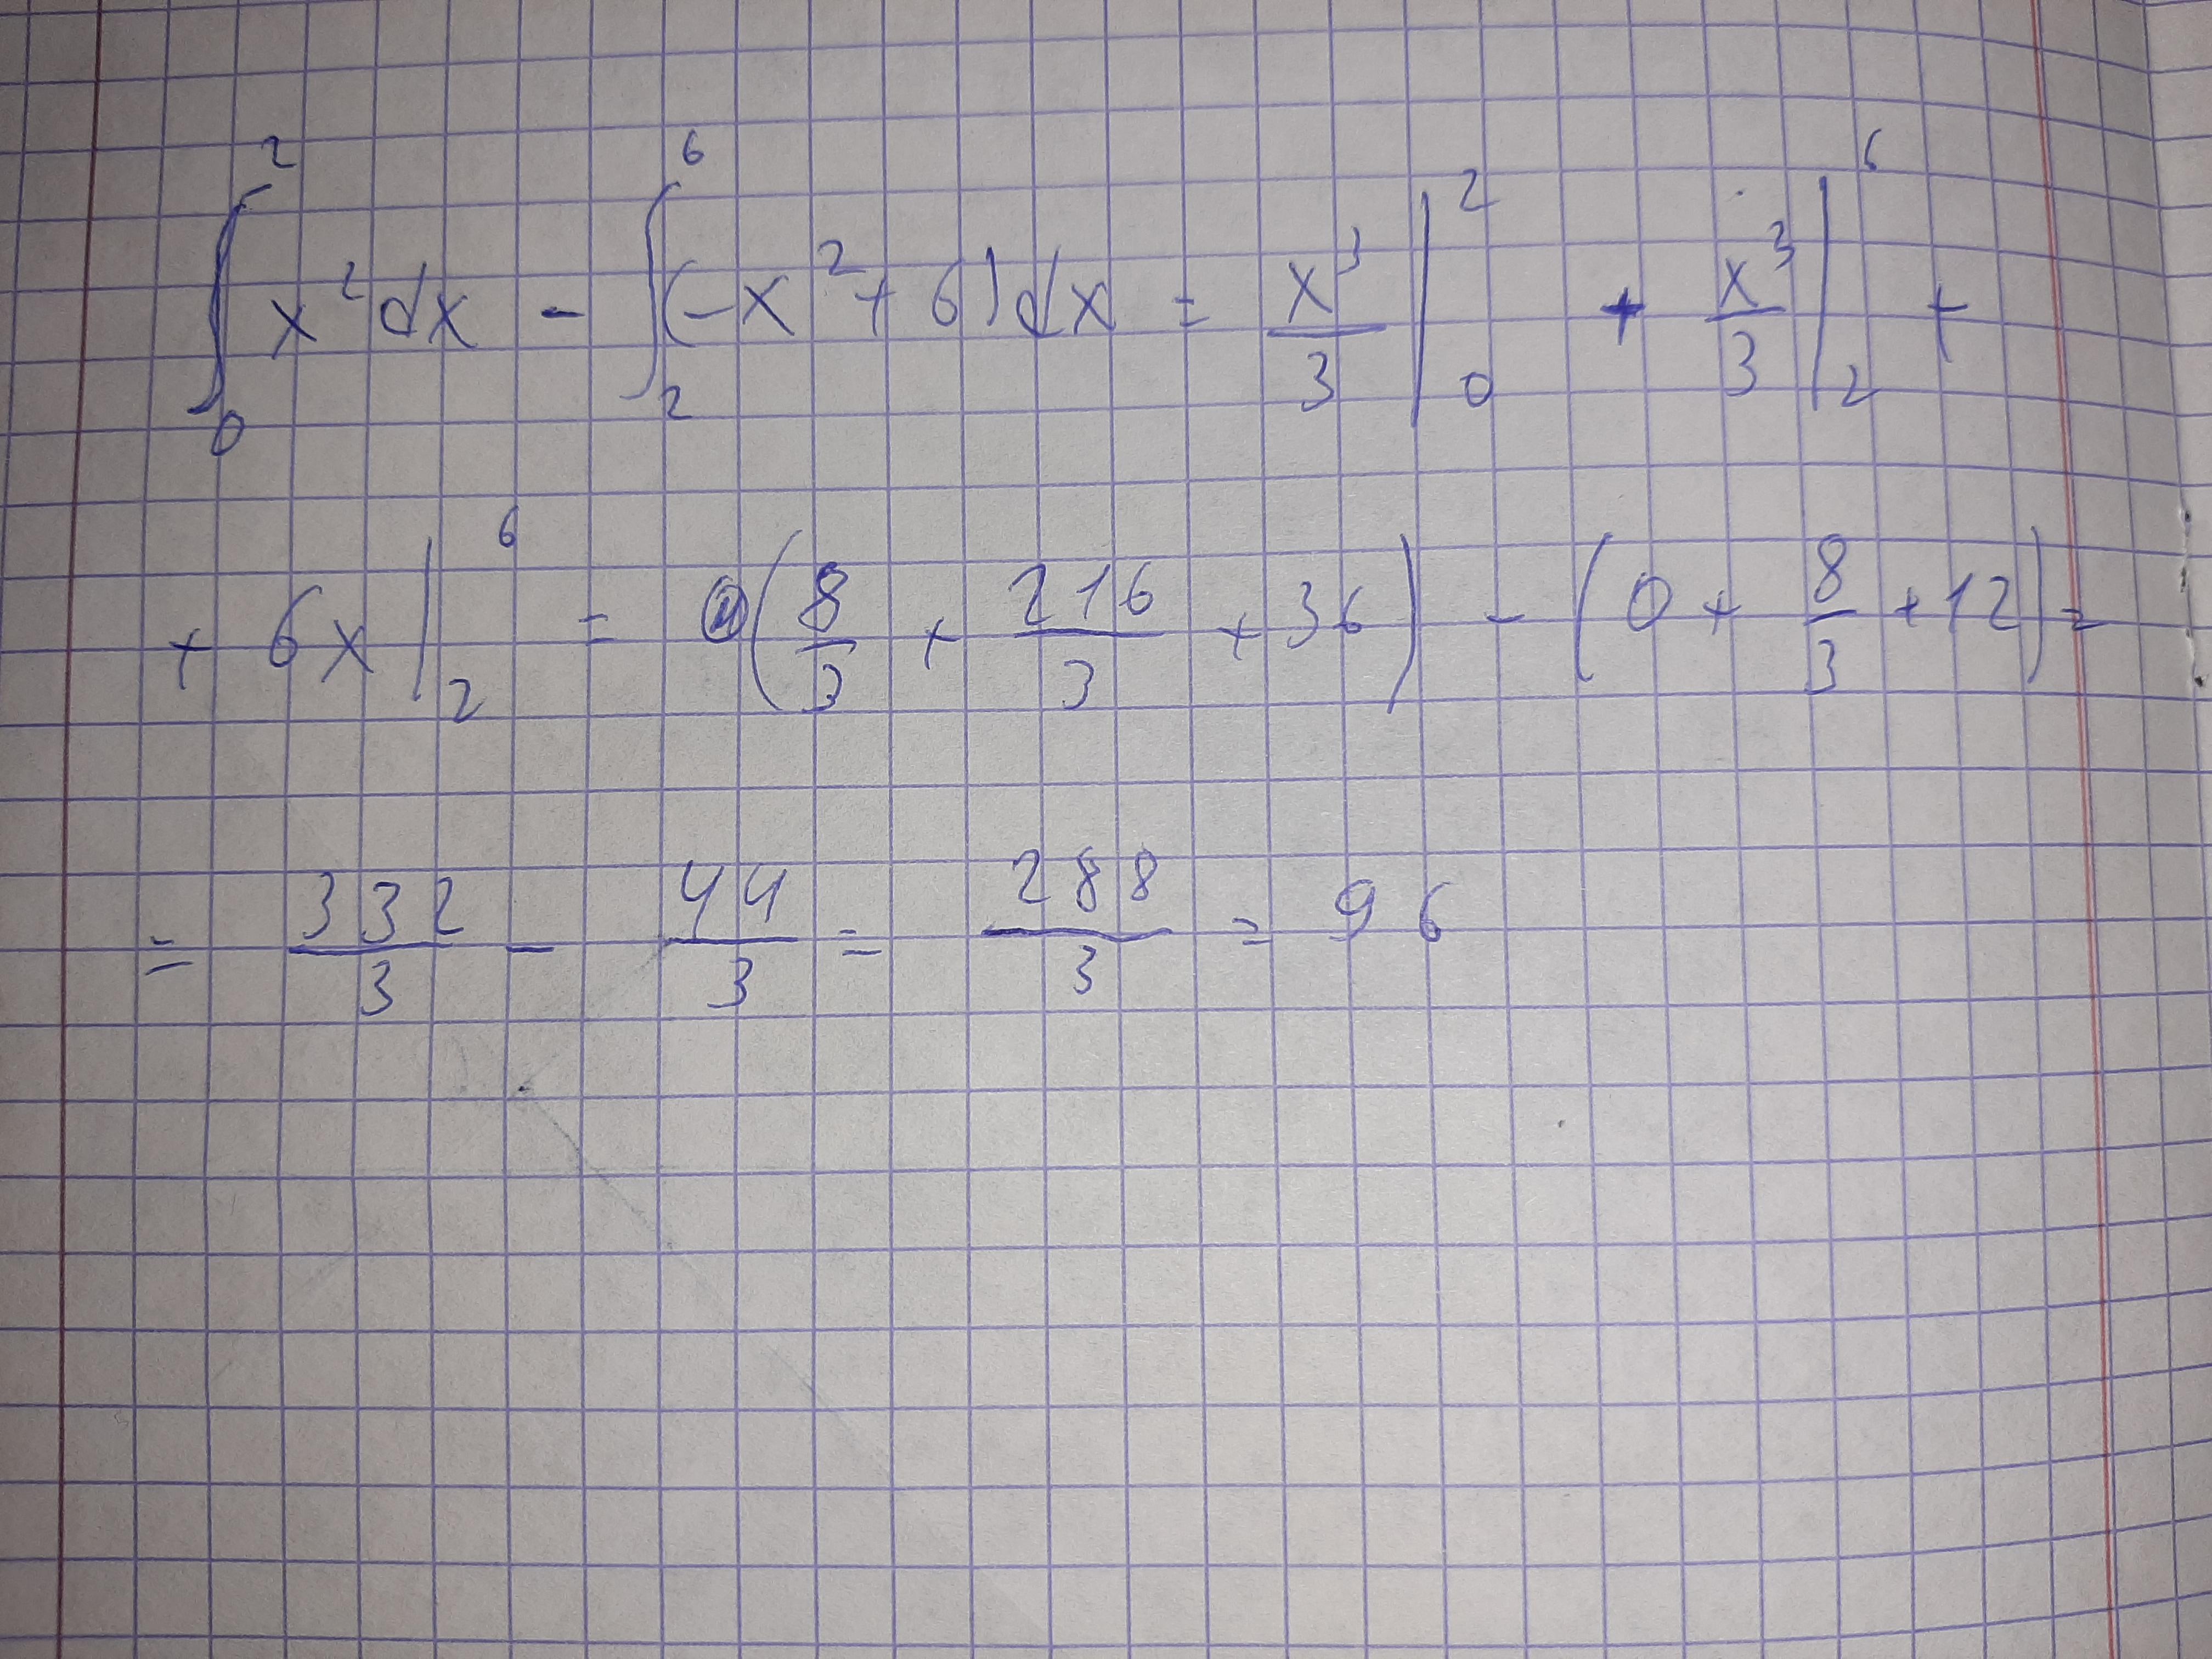 ∫₀² x² dx - ∫₂⁶ (-x² + 6) dx = x³/3 |₀² + x³/3 |₂⁶ +
+ 6x |₂⁶ = (8/3 + 216/3 + 36) - (0 + 8/3 + 12) =
= 332/3 - 44/3 = 288/3 = 96